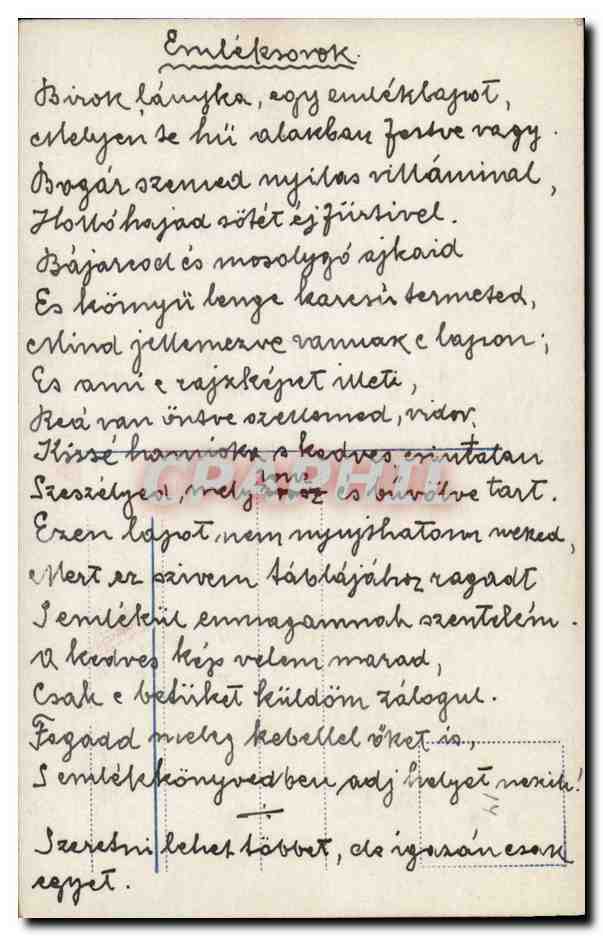 Emléksorok
Birok lányka, egy emléklapot,
Melyen te hű alakban festve vagy.
Bogár szemed nyilas villáminal,
Hollóhajad sötét éj fürtivel.
Bájarcod és mosolygó ajkaid
És könnyü lenge karcsú termeted,
Mind jellemezve vannak e lapon;
És ami e rajzképet illeti,
Reá van öntve szellemed, vidor,
Kissé hamiska s kedves csintalan
Szeszélyed, mely és büvölve tart.
Ezen lapot, nem nyujthatom neked,
Mert ez szivem táblájához ragadt
S emlékül ennmagamnak szentelém.
A kedves kép velem marad,
Csak e betüket küldöm zálogul.
Fogadd meleg kebellel őket is,
S emlékkönyvedben adj helyet nekik!
Szeretni lehet többet, de igazán csak
egyet.
CPARHTI